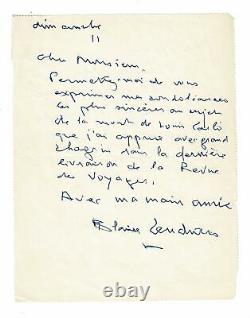 dimanche
11
Cher Monsieur.
Permettez-moi de vous
exprimer mes condoléances
les plus sincères au sujet
de la mort de Louis
que j'ai apprise avec grand
chagrin dans la dernière
livraison de la Revue
des Voyages.
Avec ma main amie
Blaise Cendrars